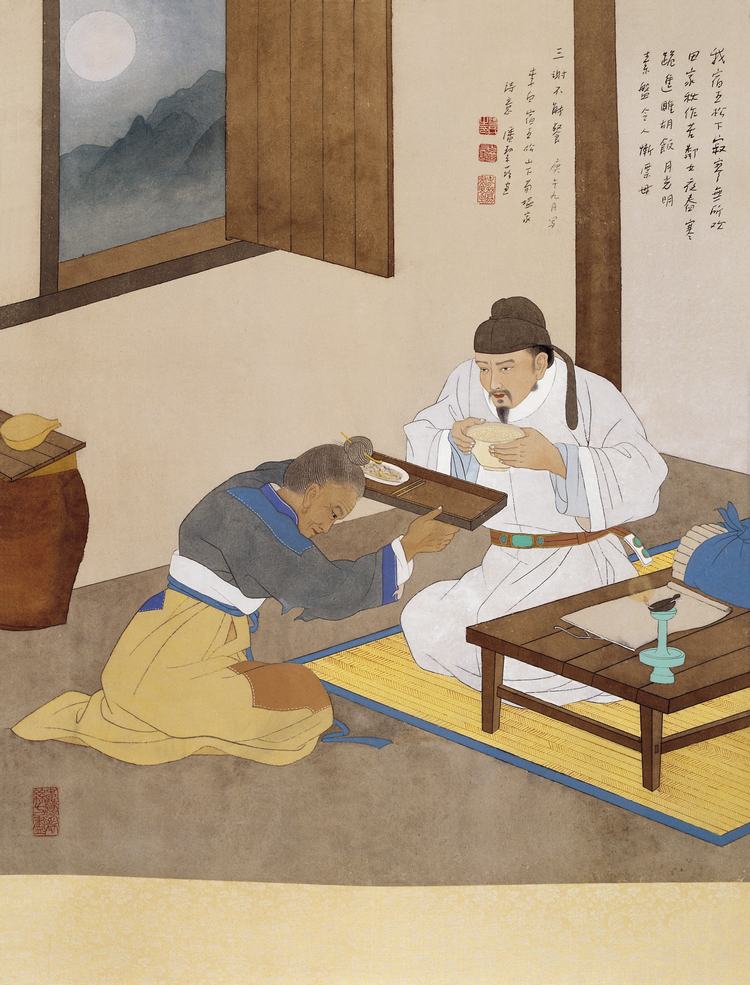 我宿五松下寂寥無所欢
田家秋作苦鄰女夜舂寒
跪進雕胡飯月光明
素盤令人慚漂母
三谢不能餐 庚午九月写
李白宿五松山下荀媪家
詩意 潘絜兹画